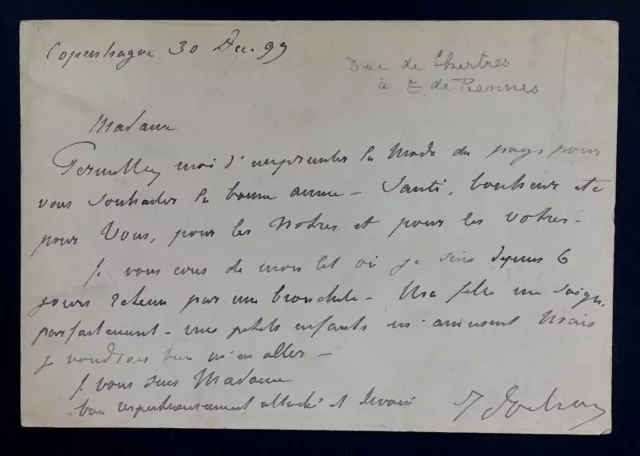 Copenhague 30 Dec. 99
Duc de Chartres
à de Rennes
Madame
Permettez moi d'emprunter la mode du pays pour
vous souhaiter la bonne année - Santé, bonheur etc
pour Vous, pour les Nôtres et pour les Vôtres -
Je vous écris de mon lit où je suis depuis 6
jours retenu par une bronchite - Ma fille me soigne
parfaitement - mes petits enfants m'amusent Mais
je voudrais bien m'en aller -
Je vous suis Madame
bien respectueusement attaché et dévoué